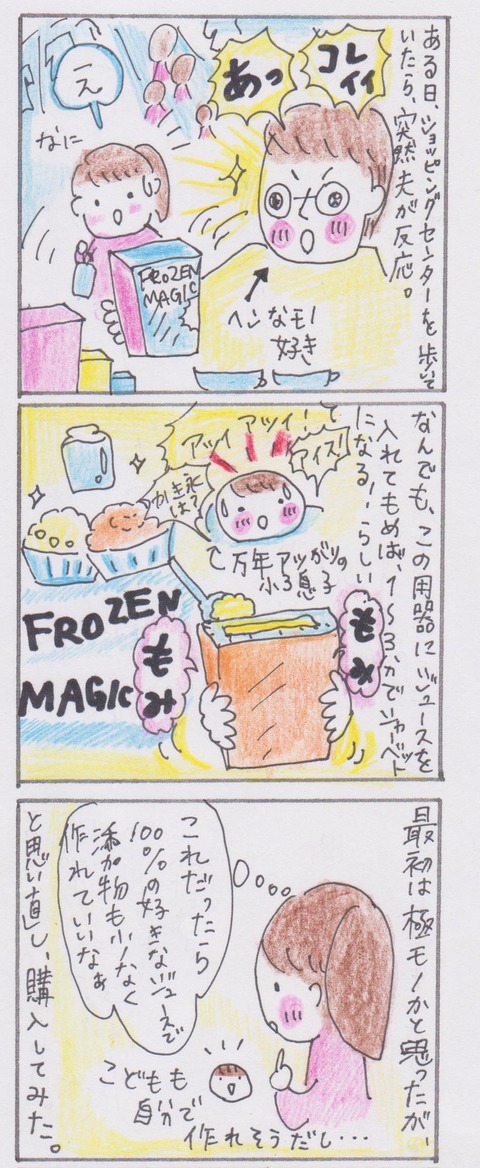 ある日、ショッピングセンターを歩いて
いたら、突然夫が反応。
コレ
イイ
あっ
え
なに
FROZEN
MAGIC
ヘンなモノ
好き
なんでも、この容器にジュースを
入れてもめば、1〜3分でシャーベット
になる!らしい…
アツイ アツイ!
アイス!
かき氷
は?
万年アツがりの
小3息子
FROZEN
MAGIC
もみ
もみ
最初は極モノかと思ったが、
これだったら
100%の好きなジュースで
添加物も少なく
作れていいなぁ
こどもも
自分で
作れそうだし…
と思い直し、購入してみた。